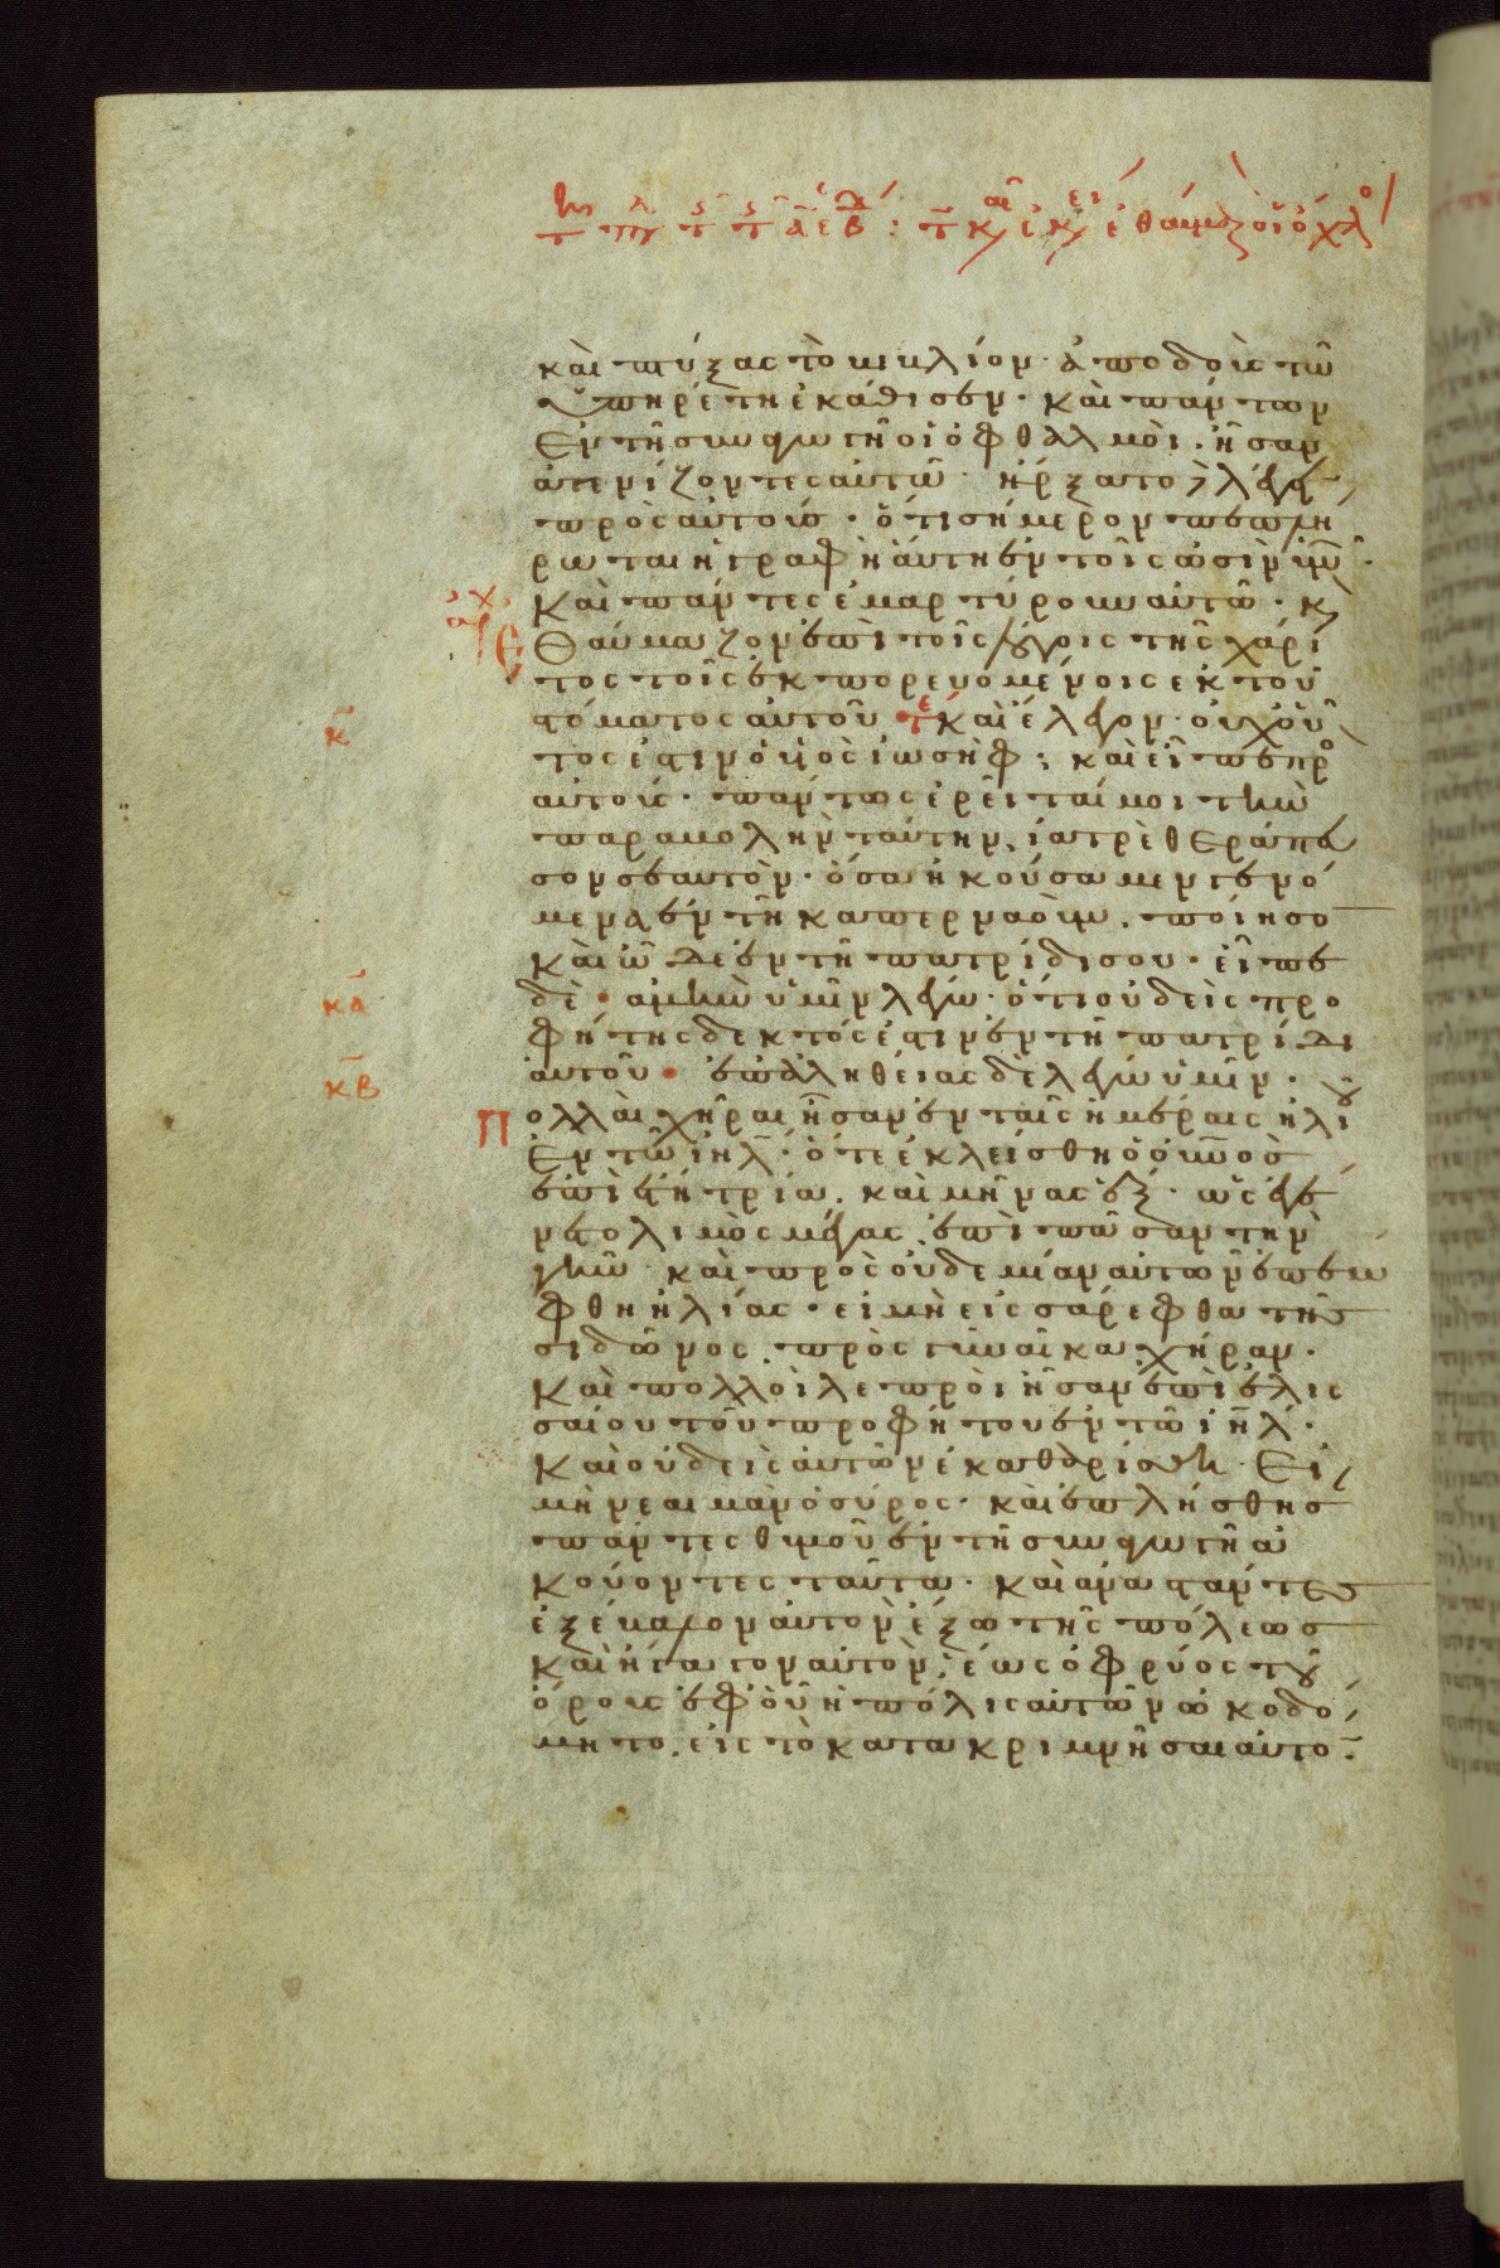 καὶ πτύξας τὸ βιβλίον· ἀποδοὺς τῶ
ὑπηρέτη ἐκάθισεν· καὶ πάντων
ἐν τῆ συναγωγῆ οἱ ὀφθαλμοὶ· ἦσαν
ἀτενίζοντες αὐτῶ· ἤρξατο λέγειν
πρὸς αὐτούς· ὅτι σήμερον πεπλη
ρωται ἡ γραφὴ ἁύτη ἐν τοῖς ὠσὶν ὑμῶν·
Καὶ πάντες ἐμαρτύρουν αὐτῶ· κ
Θαύμαζον ἐπὶ τοῖς λόγοις τῆς χάρι
τος τοῖς ἐκπορευομένοις ἐκ τοῦ
κ
στόματος αὐτοῦ καὶ ἔλεγον· οὐχ οὗ
τος ἐστιν ὁ υἱὸς ἰωσὴφ; καὶ εἶπε πρ
αὐτούς· πάντως ἐρεῖται μοι τὴν
παραβολὴν ταύτην, ἰατρὲ θεράπευ
σον σεαυτὸν· ὅσα ἠκούσαμεν γενό
μενα ἐν τῆ καπερναοὺμ, ποίησο
Καὶ ὧδε ἐν τῆ πατρίδι σου· εἶπε
κα
δὲ· ἀμὴν ὑμῖν λέγω· ὅτι οὐδεὶς προ
φήτης δεκτός ἐστιν ἐν τῆ πατρίδι
κβ
αὐτοῦ· ἐπ ἀληθείας δὲ λέγω ὑμῖν·
Πολλαὶ χῆραι ἦσαν ἐν ταῖς ἡμέραις ἠλιοῦ
ἐν τῶ ιηλ· ὅτε ἐκλείσθη ὁ ουνοσ
ἐπὶ ἔτη τρία, καὶ μῆνας ἓξ· ὡς ἐγέ
νετο λιμὸς μέγας ἐπὶ πᾶσαν τὴν
γῆν· καὶ πρὸς οὐδεμίαν αὐτῶν ἐπέμ
φθη ἠλίας· εἰ μὴ εἰς σάρεφθα τῆς
σιδῶνος, πρὸς γυναῖκα χήραν·
Καὶ πολλοὶ λεπροὶ ἦσαν ἐπὶ ἐλισ
σαίου τοῦ προφήτου ἐν τῶ ιηλ·
Καὶ οὐδεὶς αὐτῶν ἐκαθαρίσθη· Εἰ
μὴ νεαιμὰν ὁ σύρος· καὶ ἐπλήσθησ
πάντες θυμοῦ ἐν τῆ συναγωγῆ ἀ
κούοντες ταῦτα· καὶ ἀναστάντες
ἐξέβαλον αὐτὸν ἔξω τῆς πόλεως
καὶ ἤγαγον αὐτὸν, ἕως ὀφρύος τοῦ
ὄρους ἐφ οὗ ἡ πόλις αὐτῶν ὠκοδό
μητο, εἰς τὸ κατακριμνῆσαι αὐτο